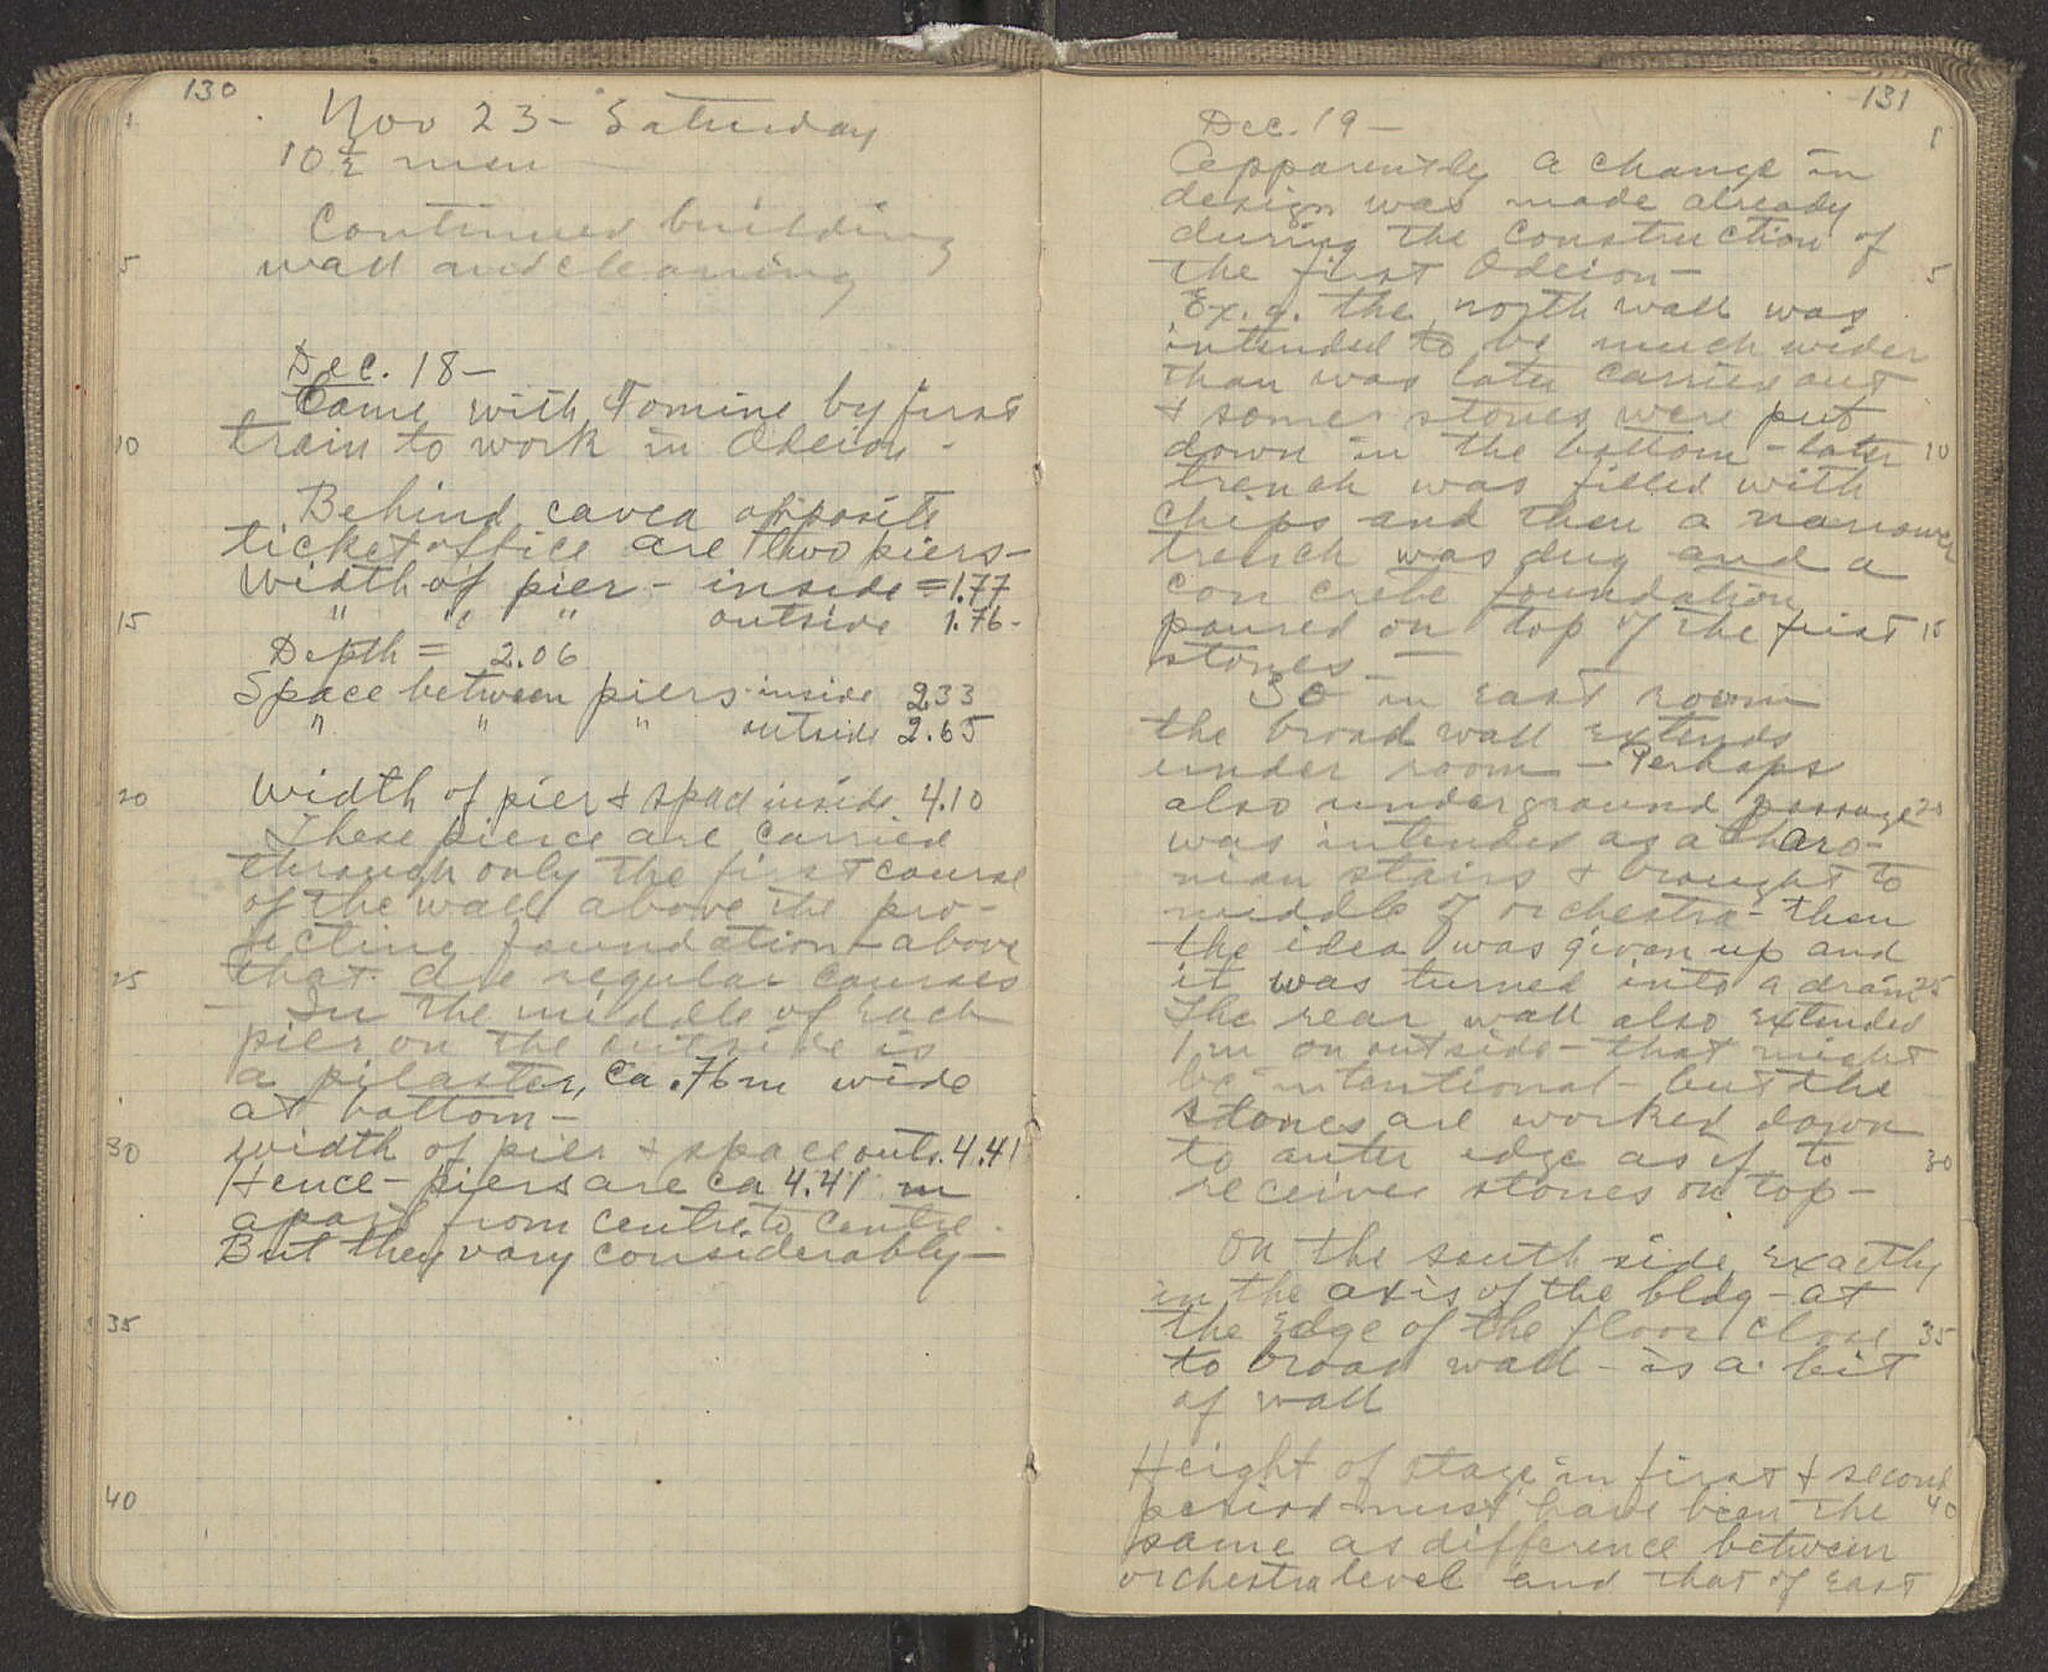 130
1
Nov 23 - Saturday
10 1/2 men
Continued building
5
wall and cleaning
Dec. 18 -
Came with Tomine by first
10
train to work in Odeion -
Behind cavea opposite
ticket office are two piers -
Width of pier - inside = 1.77
15
" " " outside 1.76 -
Depth = 2.06
Space between piers inside 2.33
" " " outside 2.65
20
Width of pier + space inside 4.10
These pierce are carried
through only the first course
of the wall above the pro-
jecting foundation - above
25
that are regular courses
- In the middle of each
pier on the outside is
a pilaster, ca .76 m wide
at bottom -
30
width of pier + space outs. 4.41
Hence - piers are ca 4.41 m
apart from centre to centre.
But they vary considerably -
35
40
131
Dec. 19 -
1
Apparently a change in
design was made already
during the construction of
the first Odeion -
5
Ex. g. the north wall was
intended to be much wider
than was later carried out
+ some stones were put
down in the bottom - later
10
trench was filled with
chips and then a narrower
trench was dug and a
concrete foundation
poured on top of the first
15
stones -
So in east room
the broad wall extends
under room - Perhaps
also underground passage
20
was intended as a Charo-
nian stairs + brought to
middle of orchestra - then
the idea was given up and
it was turned into a drain
25
The rear wall also extended
1 m on outside - that might
be intentional - but the
stones are worked down
to outer edge as if to
30
receive stones on top -
On the south side, exactly
in the axis of the bldg - at
the edge of the floor close
35
to broad wall - is a bit
of wall
Height of stage in first + second
period must have been the
40
same as difference between
orchestra level and that of east